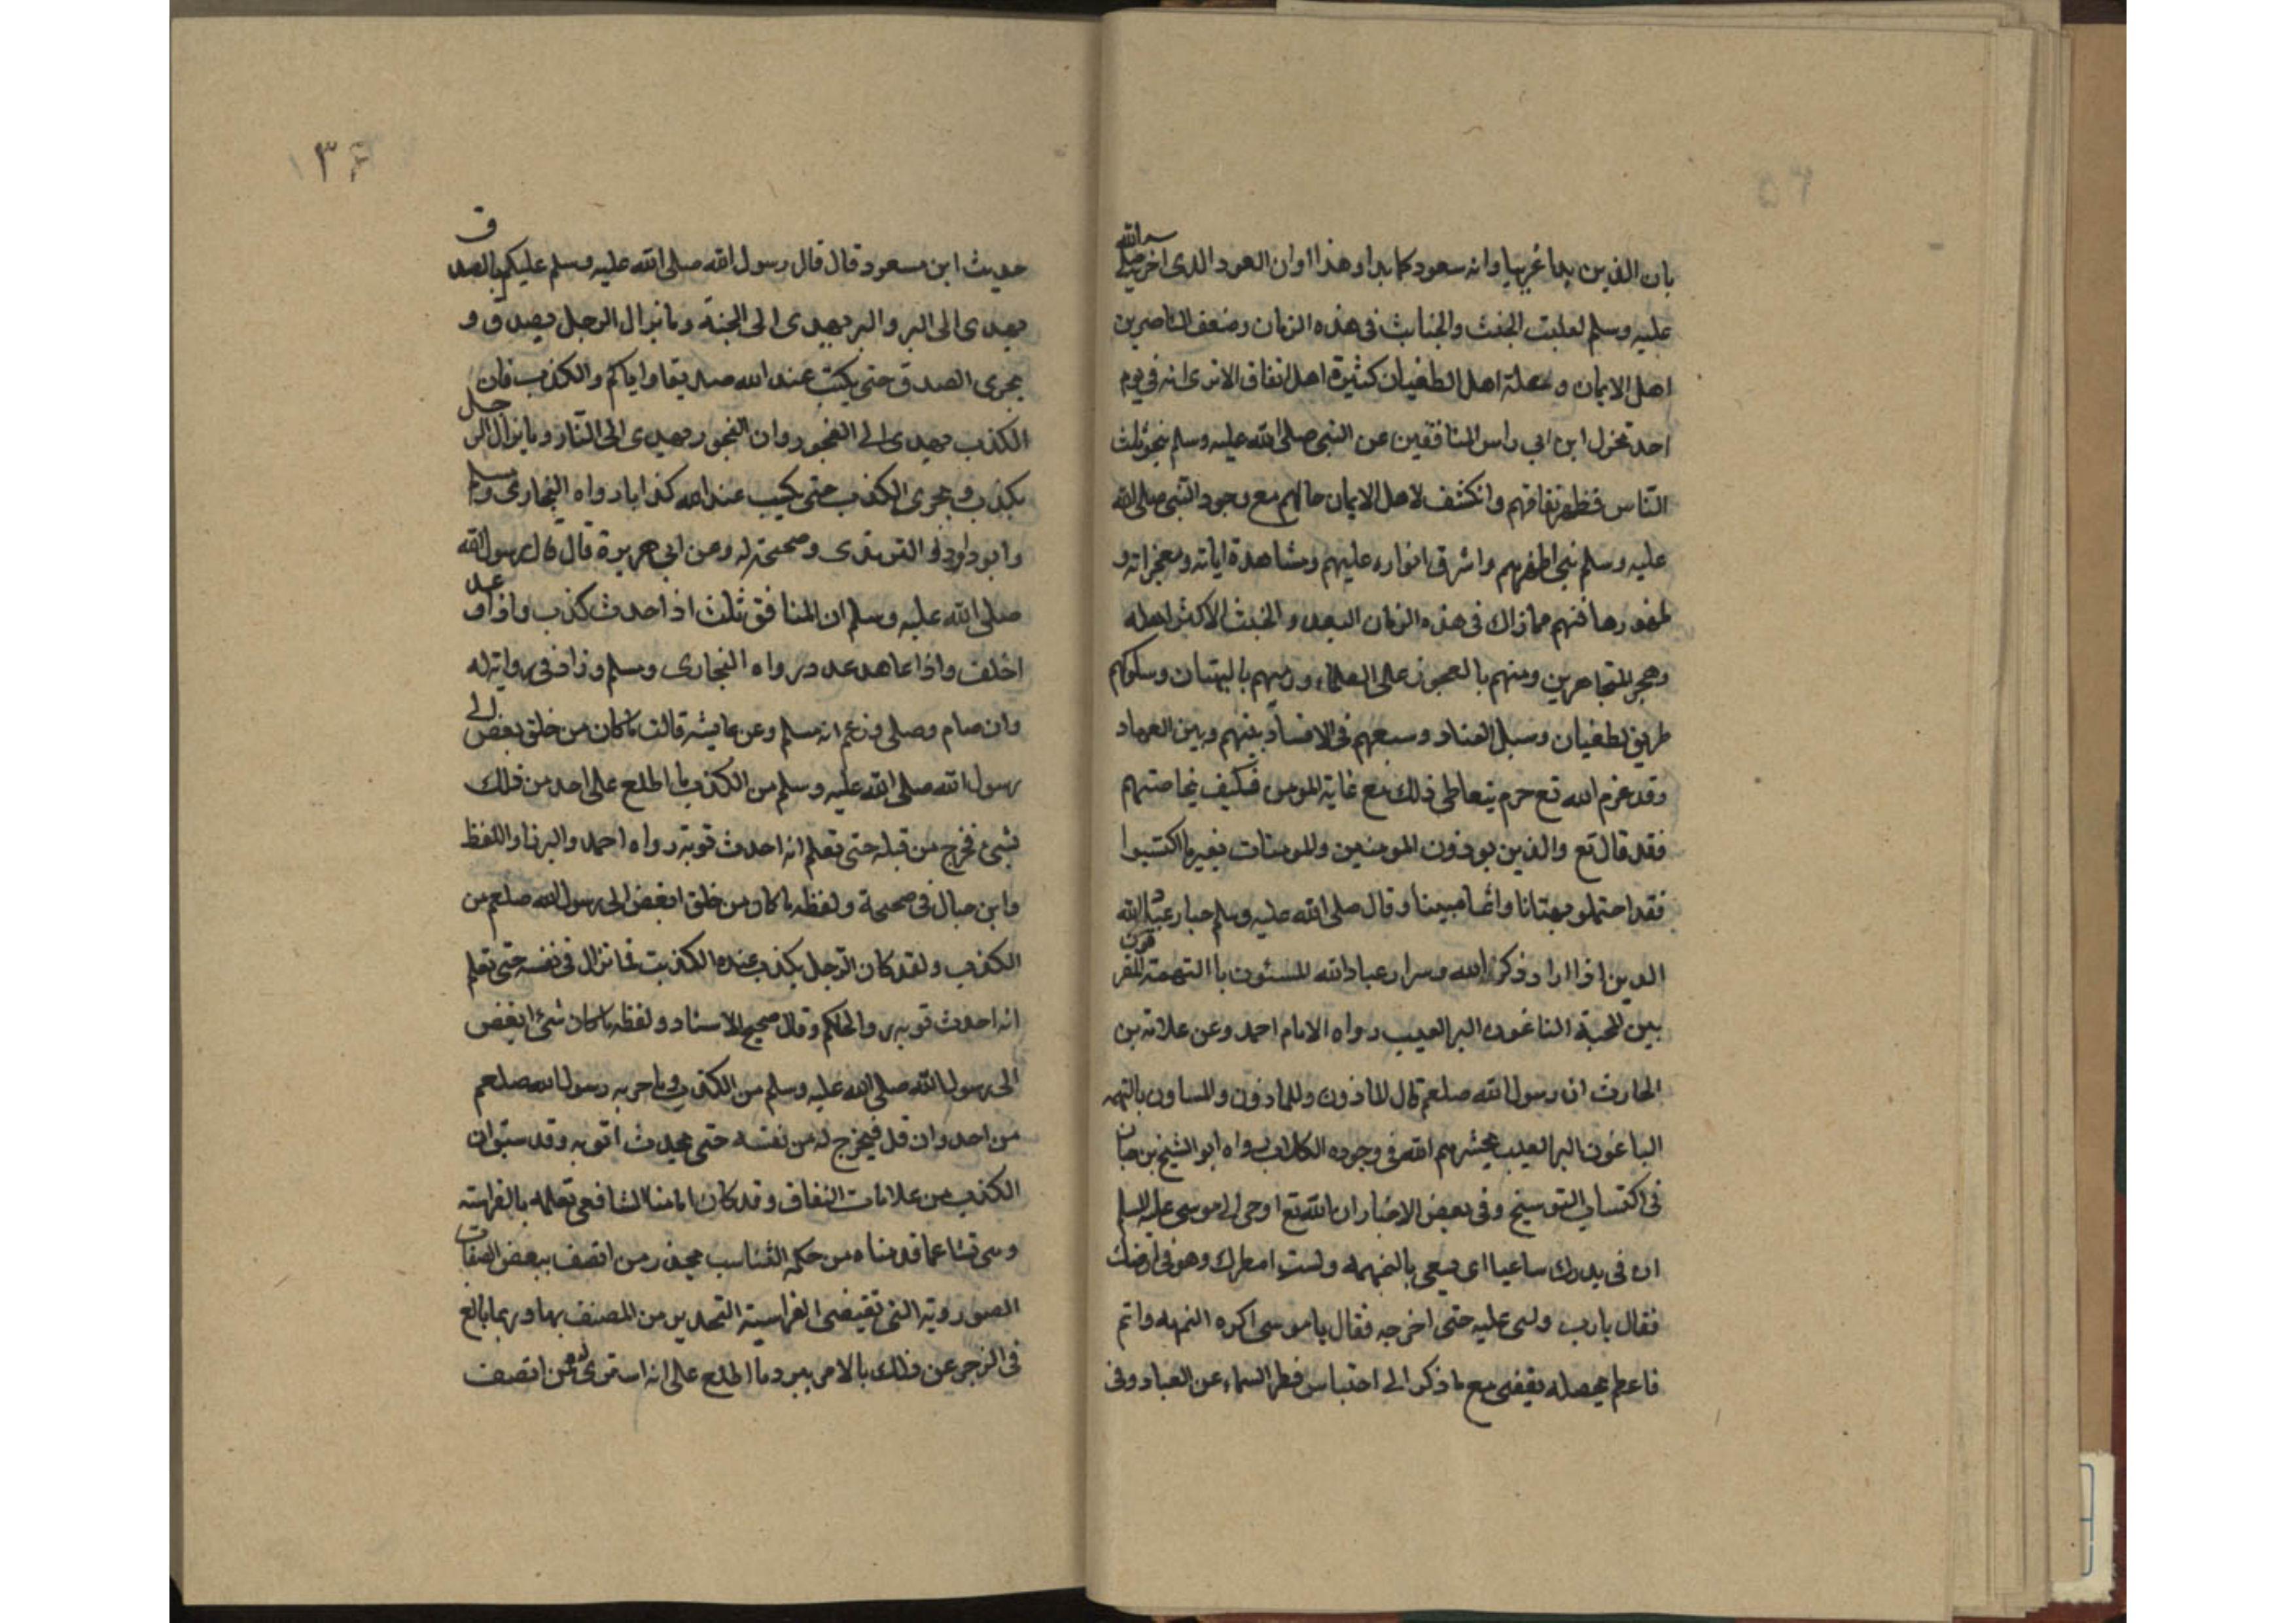 بان الذين بدا غريبا وانه سعود كما بدا وهذا اوان العود الذى اخبر صلى الله
عليه وسلم لعلبت الخبث والخباث فى هذه الزمان وضعف الناصرين
اهل الايمان و اهل الطغيان كثيرة اهل انفاق الاترى انه فى يوم
احد تخزل ابن ابي راس المنافقين عن النبى صلى الله عليه وسلم بنحو ثلث
الناس فظهر نفاقهم وانكشف لاهل الايمان حالهم مع وجود النبى صلى الله
عليه وسلم بين اظهرهم واشرق انواره عليهم ومشاهدة اياته ومعجزاته و
فى هذه الزمان البعد والخبث الاكثر اهله
وهجر المتجاهرين ومنهم على العلماء ورميهم بالبهتان وسلوكهم
طريق لطغيان وسبل العناد وسعيهم فى الافساد بينهم وبين العباد
وقد الله تع حرم يتعاطى ذلك مع غاية المومن فكيف بخاصتهم
فقد قال تع والذين يوذون المومنين والمومنات بغير ما اكتسبوا
فقد احتملو بهتانا واثما مبينا وقال صلى الله عليه وسلم خيار عباد الله
الدين اذا ارا وذكر الله وسرار عباد الله المسئون باالتهمة المفرقون
بين المحبة الباغون البر العيب رواه الامام احمد وعن علا بن
الحارث ان رسول الله صلعم قال للمازون وللمازون والمساون بالتهمه
الباغون البر العيب يحشرهم الله فى وجوه الكلاب رواه ابو الشيخ بن حبان
فى اكتساب التوسيخ وفى بعض الاخبار ان الله تع اوحى الى موسى عليه السلم
ان فى بلدك ساعيا اى يسعى بالنميمه ولست امطرك وهو فى ارضك
فقال يارب ولى عليه حتى اخرجه فقال ياموسى اكره النميمه وانم
فاعظم بحصله يقفى مع ما ذكر الى احتباس قطر السماء عن العباد وفى
١٣٤
حديث ابن مسعود قال قال رسول الله صلى الله عليه وسلم عليكم بالصدق
يهدى الى البر والبر يهدى الى الجنة ومايزال الرجل يصدق و
يحرى الصدق حتى يكتب عند الله صديقا واياكم والكذب فان
الكذب يهدى الى الفجور وان الفجور يهدى الى النار ومايزال الرجل
يكذب ويحرى الكذب حتى يكتب عند الله كذابا رواه البخارى ومسلم
وابو داود والترمذى وصححه له وعن ابى هريرة قال قال رسول الله
صلى الله عليه وسلم ان المنافق ثلث اذا حدث كذب واذا وعد
اخلف واذا عاهد عدر رواه البخارى ومسلم وزاد فى رواية له
وان صام وصلى وزعم انه مسلم وعن عايشة قالت ماكان من خلق بعض الى
رسول الله صلى الله عليه وسلم من الكذب ما اطلع على احد من ذلك
بشئ فخرج من قبله حتى تعلم انه احدث توبة رواه احمد والبزار واللفظ
وابن حبان فى صحيحة ولفظه ماكان من خلق ابغض الى رسول الله صلعم من
الكذب ولقد كان الرجل يكذب عنده الكذبت فما تزال فى نفسه حتى تعلم
انه احدث توبه رواه الحاكم وقال صحيح الاسناد ولفظه ماكان شئ ابغض
الى رسول الله صلى الله عليه وسلم من الكذب وماجربه رسول الله صلعم
من احد وان قل فيخرج له من نفسه حتى يحدث اتوبه وقد سبق ان
الكذب من علامات النفاق وقد كان امامنا الشافعى تعلمه بالفراسة
قدمناه من حكم التناسب يحذر من اتصف ببعض الصفات
الصوروية التى تقيضى الفراسية التحدير من المصنف بها وربما بالغ
فى الزجر عن ذلك بالامر ببرد ما اطلع على انه استرى له من اتصف